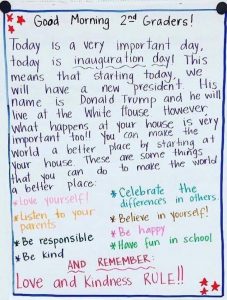 Good Morning 2nd Graders!
Today is a very important day,
today is inauguration day! This
means that starting today, we
will have a new president. His
name is Donald Trump and he will
live at the White House. However
what happens at your house is very
important too!! You can make the
world a better place by starting at
your house. These are some things
that you can do to make the world
a better place:
*Love yourself!
*Listen to your
parents
*Be responsible
*Be kind
*Celebrate the
differences in others.
*Believe in yourself!
*Be happy
*Have fun in school
AND REMEMBER:
Love and Kindness RULE!!